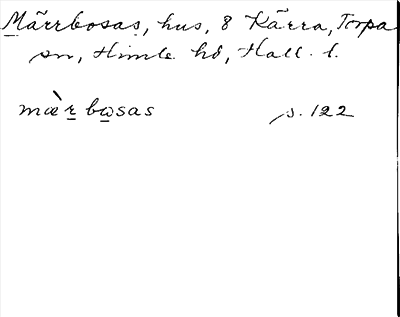 Märrbosas, hus, 8 Kärra, Torpa
sn, Himle hd, Hall. l.
mæ̀r̲bo̲sas s. 122